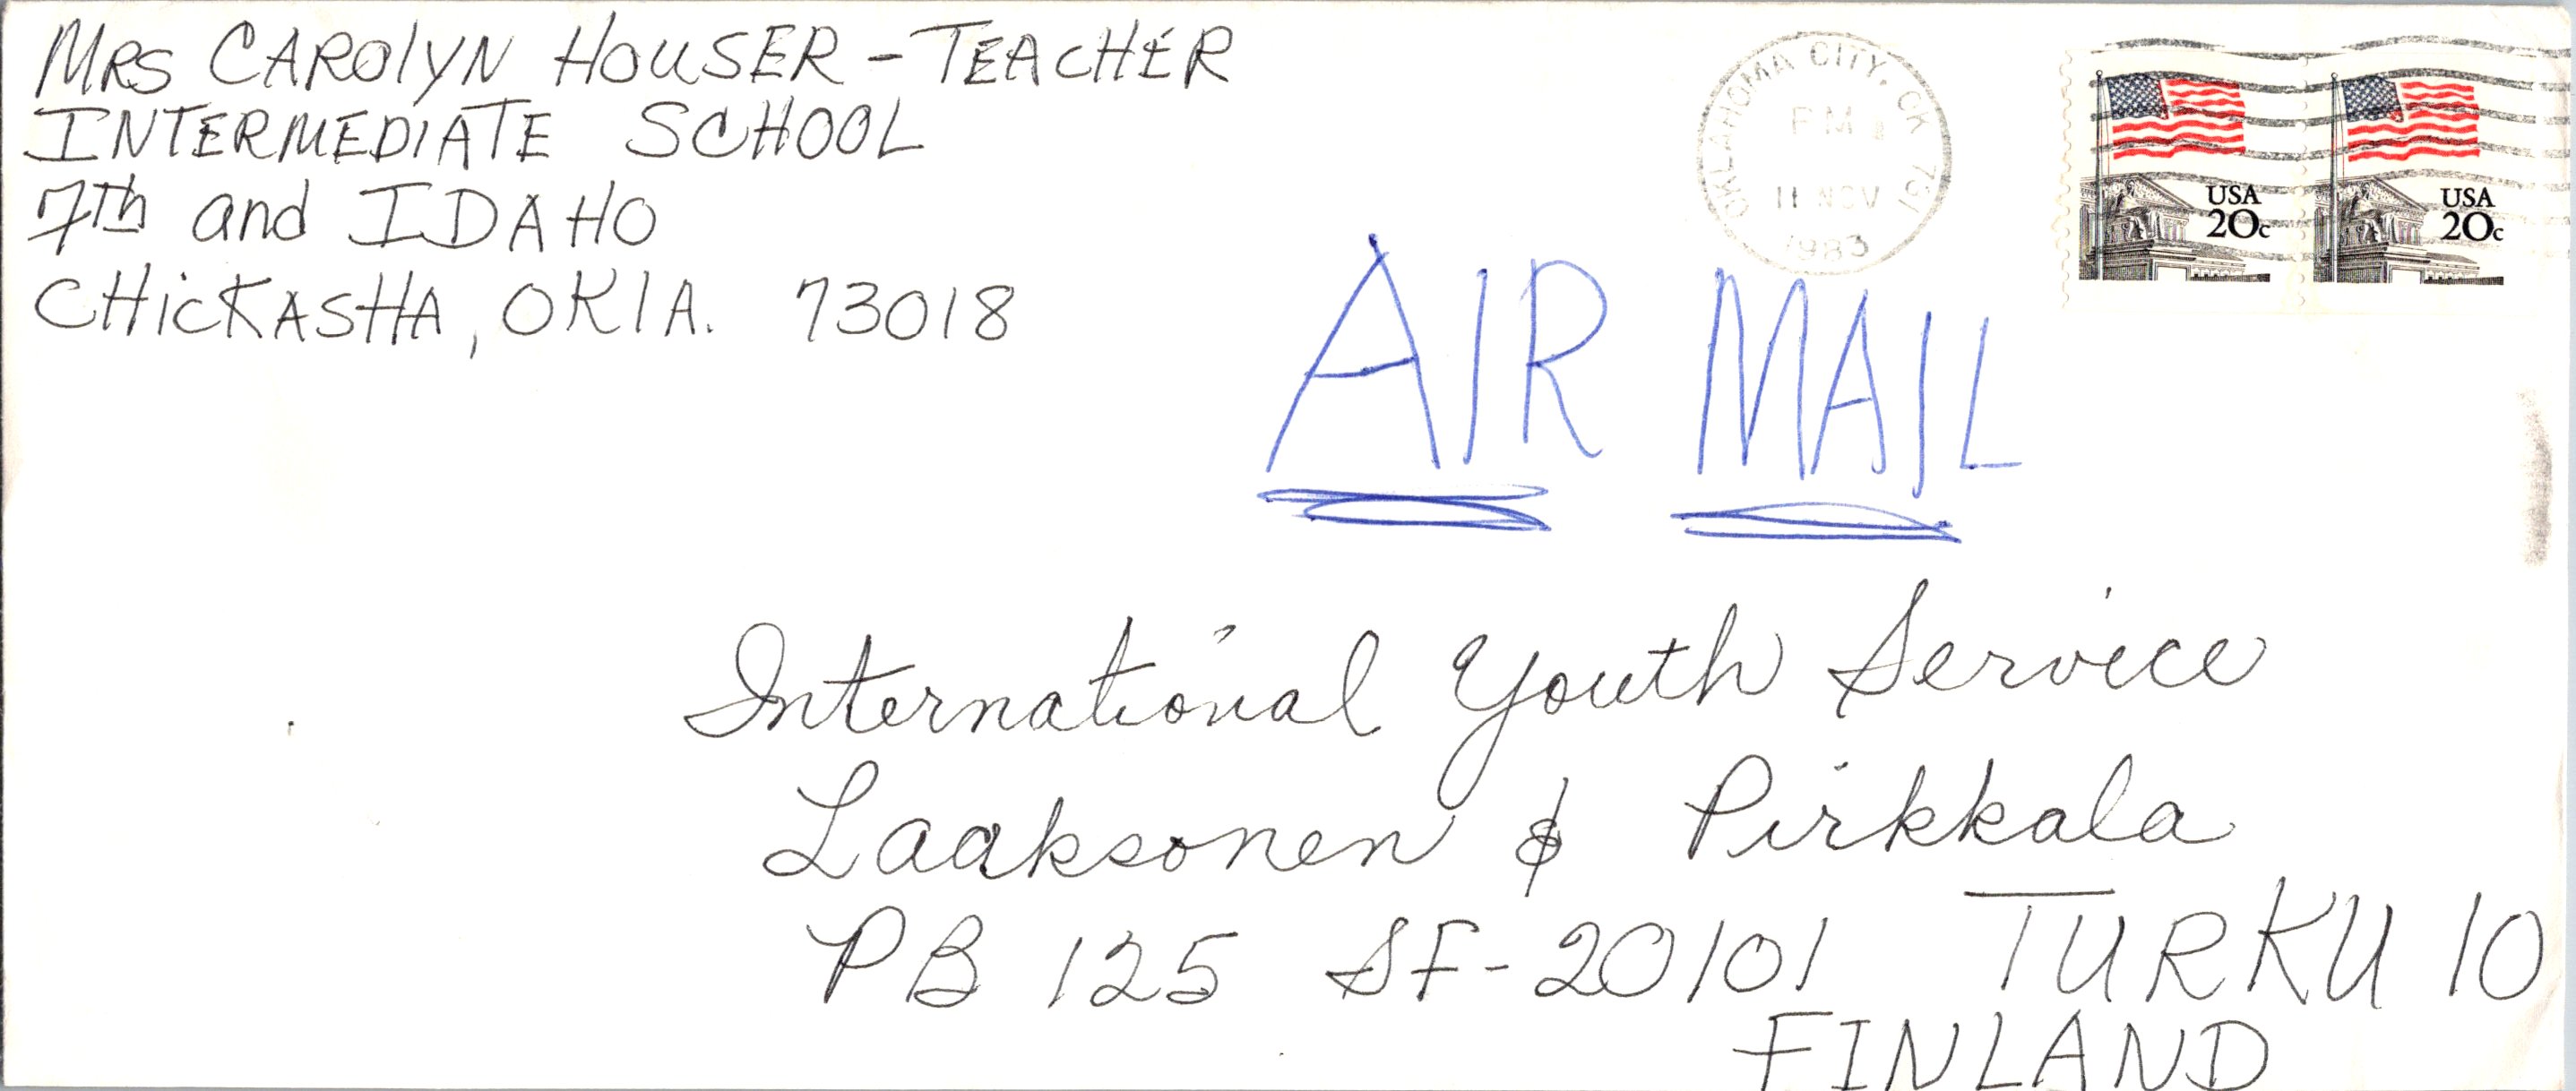 MRS CAROlYN HOUSER - TEACHER
INTERMEDIATE SCHOOL
7th and IDAHO
CHicKASHA, OKlA. 73018
OKLAHOMA CITY, OK 731
PM
11 NOV
1983
USA
20c
USA
20c
AIR MAIL
International Youth Service
Laaksonen & Pirkkala
PB 125 SF-20101 TURKU 10
FINLAND